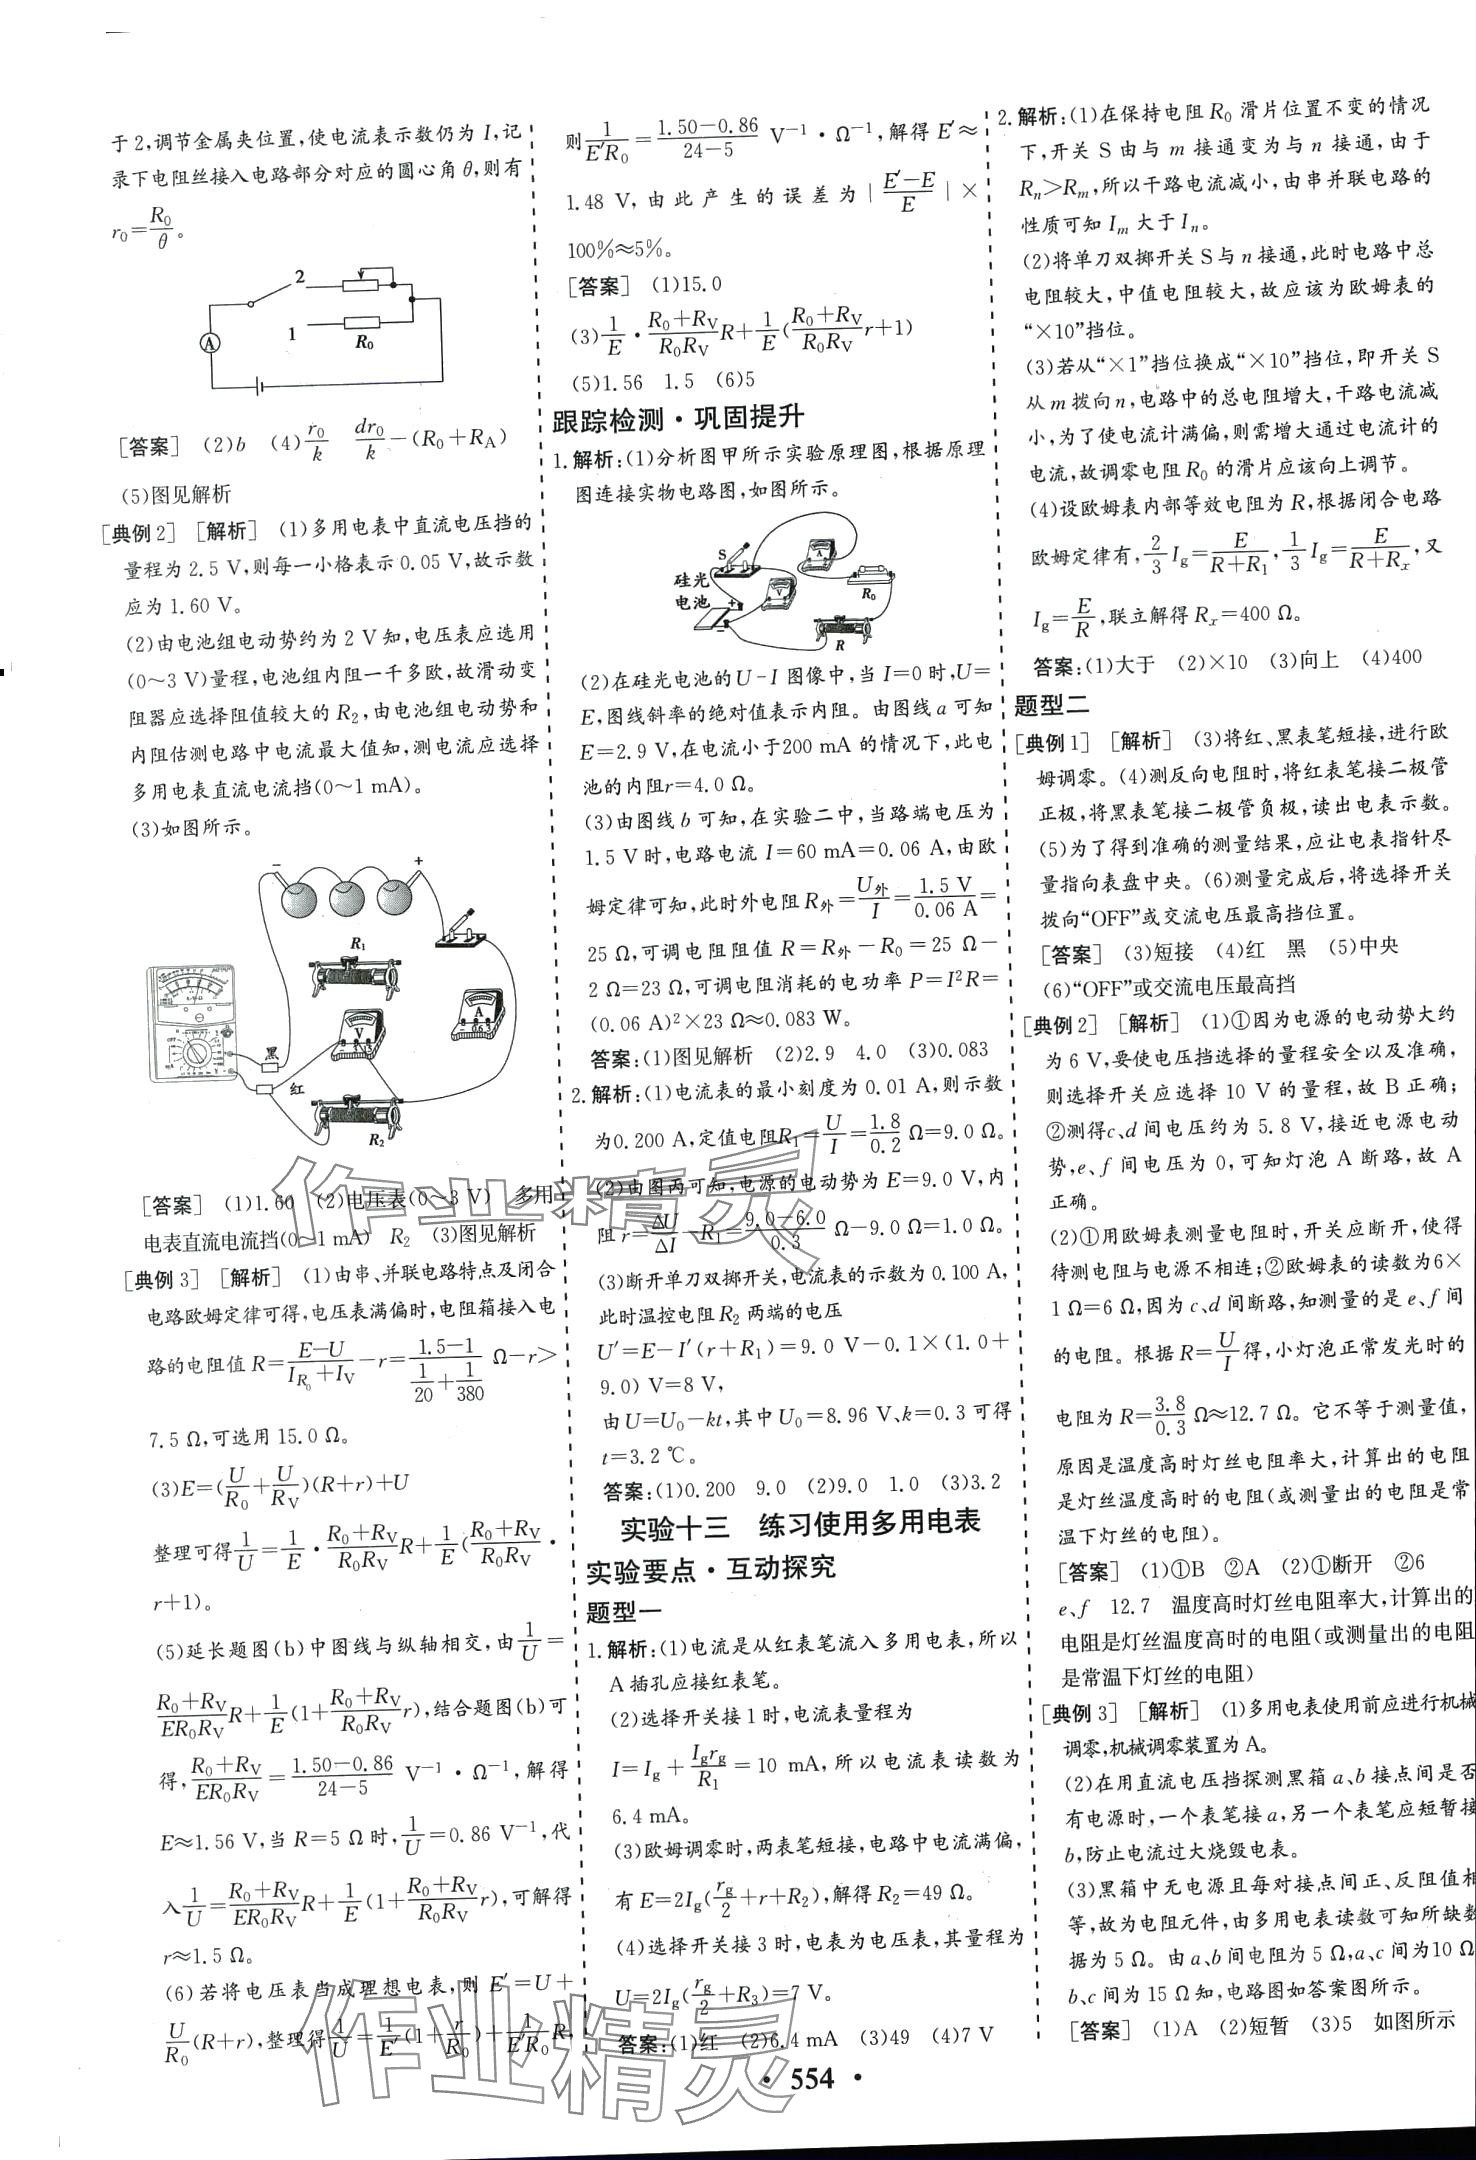 于2,调节金属夹位置,使电流表示数仍为 I,记
录下电阻丝接入电路部分对应的圆心角 θ,则有
r₀=R₀/θ。
2
1
R₀
A
[答案] (2)b (4)r₀/k dr₀/k−(R₀+R_A)
(5)图见解析
[典例2] [解析] (1)多用电表中直流电压挡的
量程为 2.5 V,则每一小格表示 0.05 V,故示数
应为 1.60 V。
(2)由电池组电动势约为 2 V 知,电压表应选用
(0~3 V)量程,电池组内阻一千多欧,故滑动变
阻器应选择阻值较大的 R₂,由电池组电动势和
内阻估测电路中电流最大值知,测电流应选择
多用电表直流电流挡(0~1 mA)。
(3)如图所示。
− +
R₁
A
V
黑
红
R₂
[答案] (1)1.60 (2)电压表(0~3 V) 多用
电表直流电流挡(0~1 mA) R₂ (3)图见解析
[典例3] [解析] (1)由串、并联电路特点及闭合
电路欧姆定律可得,电压表满偏时,电阻箱接入电
路的电阻值 R=(E−U)/(I_R₀+I_V)−r=(1.5−1)/(1/20+1/380) Ω−r>
7.5 Ω,可选用 15.0 Ω。
(3)E=(U/R₀+U/R_V)(R+r)+U
整理可得1/U=1/E·(R₀+R_V)/(R₀R_V)R+1/E((R₀+R_V)/(R₀R_V)
r+1)。
(5)延长题图(b)中图线与纵轴相交,由1/U=
(R₀+R_V)/(ER₀R_V)R+1/E(1+(R₀+R_V)/(R₀R_V)r),结合题图(b)可
得,(R₀+R_V)/(ER₀R_V)=(1.50−0.86)/(24−5) V⁻¹·Ω⁻¹,解得
E≈1.56 V,当 R=5 Ω 时,1/U=0.86 V⁻¹,代
入1/U=(R₀+R_V)/(ER₀R_V)R+1/E(1+(R₀+R_V)/(R₀R_V)r),可解得
r≈1.5 Ω。
(6)若将电压表当成理想电表,则 E′=U+
U/R₀(R+r),整理得1/U=1/E′(1+r/R₀)+1/(E′R₀)R,
则1/(E′R₀)=(1.50−0.86)/(24−5) V⁻¹·Ω⁻¹,解得 E′≈
1.48 V,由此产生的误差为|(E′−E)/E|×
100%≈5%。
[答案] (1)15.0
(3)1/E·(R₀+R_V)/(R₀R_V)R+1/E((R₀+R_V)/(R₀R_V)r+1)
(5)1.56 1.5 (6)5
跟踪检测·巩固提升
1.解析:(1)分析图甲所示实验原理图,根据原理
图连接实物电路图,如图所示。
S
A
V
硅光
电池
+
−
R₀
R
(2)在硅光电池的U-I 图像中,当 I=0 时,U=
E,图线斜率的绝对值表示内阻。由图线 a 可知
E=2.9 V,在电流小于200 mA 的情况下,此电
池的内阻r=4.0 Ω。
(3)由图线 b 可知,在实验二中,当路端电压为
1.5 V时,电路电流 I=60 mA=0.06 A,由欧
姆定律可知,此时外电阻 R外=U外/I=1.5 V/0.06 A=
25 Ω,可调电阻阻值 R=R外−R₀=25 Ω−
2 Ω=23 Ω,可调电阻消耗的电功率 P=I²R=
(0.06 A)²×23 Ω≈0.083 W。
答案:(1)图见解析 (2)2.9 4.0 (3)0.083
2.解析:(1)电流表的最小刻度为 0.01 A,则示数
为0.200 A,定值电阻R₁=U/I=1.8/0.2 Ω=9.0 Ω。
(2)由图丙可知,电源的电动势为 E=9.0 V,内
阻 r=ΔU/ΔI−R₁=(9.0−6.0)/0.3 Ω−9.0 Ω=1.0 Ω。
(3)断开单刀双掷开关,电流表的示数为 0.100 A,
此时温控电阻 R₂ 两端的电压
U′=E−I′(r+R₁)=9.0 V−0.1×(1.0+
9.0) V=8 V,
由 U=U₀−kt,其中 U₀=8.96 V、k=0.3 可得
t=3.2 ℃。
答案:(1)0.200 9.0 (2)9.0 1.0 (3)3.2
实验十三 练习使用多用电表
实验要点·互动探究
题型一
1.解析:(1)电流是从红表笔流入多用电表,所以
A 插孔应接红表笔。
(2)选择开关接 1 时,电流表量程为
I=I_g+I_g r_g/R₁=10 mA,所以电流表读数为
6.4 mA。
(3)欧姆调零时,两表笔短接,电路中电流满偏,
有 E=2I_g(r_g/2+r+R₂),解得 R₂=49 Ω。
(4)选择开关接 3 时,电表为电压表,其量程为
U=2I_g(r_g/2+R₃)=7 V。
答案:(1)红 (2)6.4 mA (3)49 (4)7 V
2.解析:(1)在保持电阻 R₀ 滑片位置不变的情况
下,开关 S 由与 m 接通变为与 n 接通,由于
Rₙ>Rₘ,所以干路电流减小,由串并联电路的
性质可知 Iₘ 大于 Iₙ。
(2)将单刀双掷开关 S 与 n 接通,此时电路中总
电阻较大,中值电阻较大,故应该为欧姆表的
“×10”挡位。
(3)若从“×1”挡位换成“×10”挡位,即开关 S
从 m 拨向 n,电路中的总电阻增大,干路电流减
小,为了使电流计满偏,则需增大通过电流计的
电流,故调零电阻 R₀ 的滑片应该向上调节。
(4)设欧姆表内部等效电阻为 R,根据闭合电路
欧姆定律有,2/3 I_g=E/(R+R₁),1/3 I_g=E/(R+Rₓ),又
I_g=E/R,联立解得 Rₓ=400 Ω。
答案:(1)大于 (2)×10 (3)向上 (4)400
题型二
[典例1] [解析] (3)将红、黑表笔短接,进行欧
姆调零。(4)测反向电阻时,将红表笔接二极管
正极,将黑表笔接二极管负极,读出电表示数。
(5)为了得到准确的测量结果,应让电表指针尽
量指向表盘中央。(6)测量完成后,将选择开关
拨向“OFF”或交流电压最高挡位置。
[答案] (3)短接 (4)红 黑 (5)中央
(6)“OFF”或交流电压最高挡
[典例2] [解析] (1)①因为电源的电动势大约
为 6 V,要使电压挡选择的量程安全以及准确,
则选择开关应选择 10 V 的量程,故 B 正确;
②测得c、d 间电压约为 5.8 V,接近电源电动
势,e、f 间电压为 0,可知灯泡 A 断路,故 A
正确。
(2)①用欧姆表测量电阻时,开关应断开,使得
待测电阻与电源不相连;②欧姆表的读数为6×
1 Ω=6 Ω,因为 c、d 间断路,知测量的是 e、f 间
的电阻。根据 R=U/I得,小灯泡正常发光时的
电阻为 R=3.8/0.3 Ω≈12.7 Ω。它不等于测量值,
原因是温度高时灯丝电阻率大,计算出的电阻
是灯丝温度高时的电阻(或测量出的电阻是常
温下灯丝的电阻)。
[答案] (1)①B ②A (2)①断开 ②6
e、f 12.7 温度高时灯丝电阻率大,计算出的
电阻是灯丝温度高时的电阻(或测量出的电阻
是常温下灯丝的电阻)
[典例3] [解析] (1)多用电表使用前应进行机械
调零,机械调零装置为 A。
(2)在用直流电压挡探测黑箱 a、b 接点间是否
有电源时,一个表笔接 a,另一个表笔应短暂接
b,防止电流过大烧毁电表。
(3)黑箱中无电源且每对接点间正、反阻值相
等,故为电阻元件,由多用电表读数可知所缺数
据为 5 Ω。由 a、b 间电阻为 5 Ω,a、c 间为10 Ω
b、c 间为 15 Ω 知,电路图如答案图所示。
[答案] (1)A (2)短暂 (3)5 如图所示
·554·
作业精灵
作业精灵